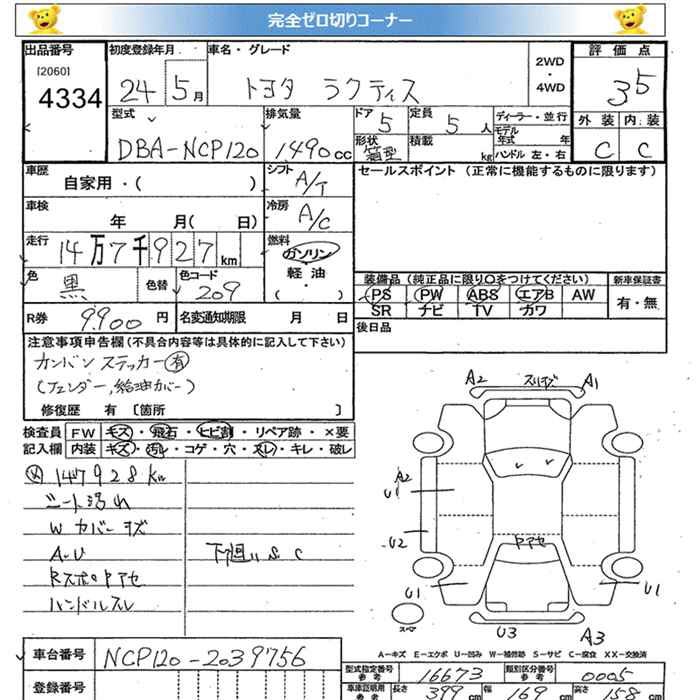 完全ゼロ切りコーナー
出品番号 初度登録年月 車名・グレード 2WD・4WD 評価点
[2060]
4334 24 5月 トヨタ ラクティス 3.5
型式 排気量 ドア 5 定員 5人 ディーラー・並行 外装 内装
DBA-NCP120 1490cc 形状 箱型 積載 kg モデル年式 年 ハンドル 左・右 C C
車歴 自家用・( ) シフト A/T セールスポイント (正常に機能するものに限ります)
車検 年 月( 日) 冷房 A/C
走行 14万7千927km 燃料 ガソリン
軽油
・( )
色 黒 色替 色コード 209 装備品 (純正品に限り○をつけてください) 新車保証書
PS PW ABS エアB AW 有・無
SR ナビ TV カワ
R券 9,900円 名変通知期限 月 日 後日品
注意事項申告欄(不具合内容等は具体的に記入して下さい)
カンバン ステッカー有
(フェンダー,給油カバー)
修復歴 有 〔箇所 〕
検査員 FW キズ・飛石・ヒビ割・リペア跡・×要
記入欄 内装 キズ・汚レ・コゲ・穴・スレ・キレ・破レ
メ 147928km
シート汚れ
Wカバーキズ
A・U 下廻り S C
ハンドルスレ
A2 A1
A2
U1
U2
Pアセ
U1 U1
U3 A3
スペア
A-キズ E-エクボ U-凹み W-補修跡 S-サビ C-腐食 XX-交換済
車台番号 NCP120-2039756
登録番号
型式指定番号 参考 16673 類別区分番号 参考 0005
車庫証明用 参考 長さ 399cm 幅 169cm 高さ 158cm